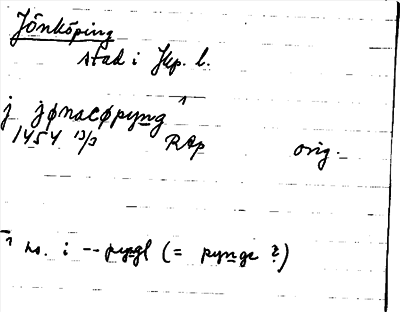 Jönköping
stad i Jkp. l.
j jønacøpyng ¹
1454 13/3 RAp orig.
¹ ns. i -- pyngl (= pynge ?)